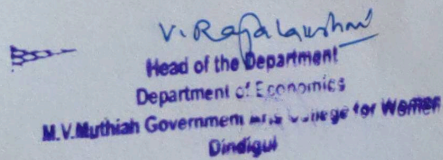 V. Rajalakshmi
Head of the Department
Department of Economics
M.V.Muthiah Government Arts College for Women
Dindigul